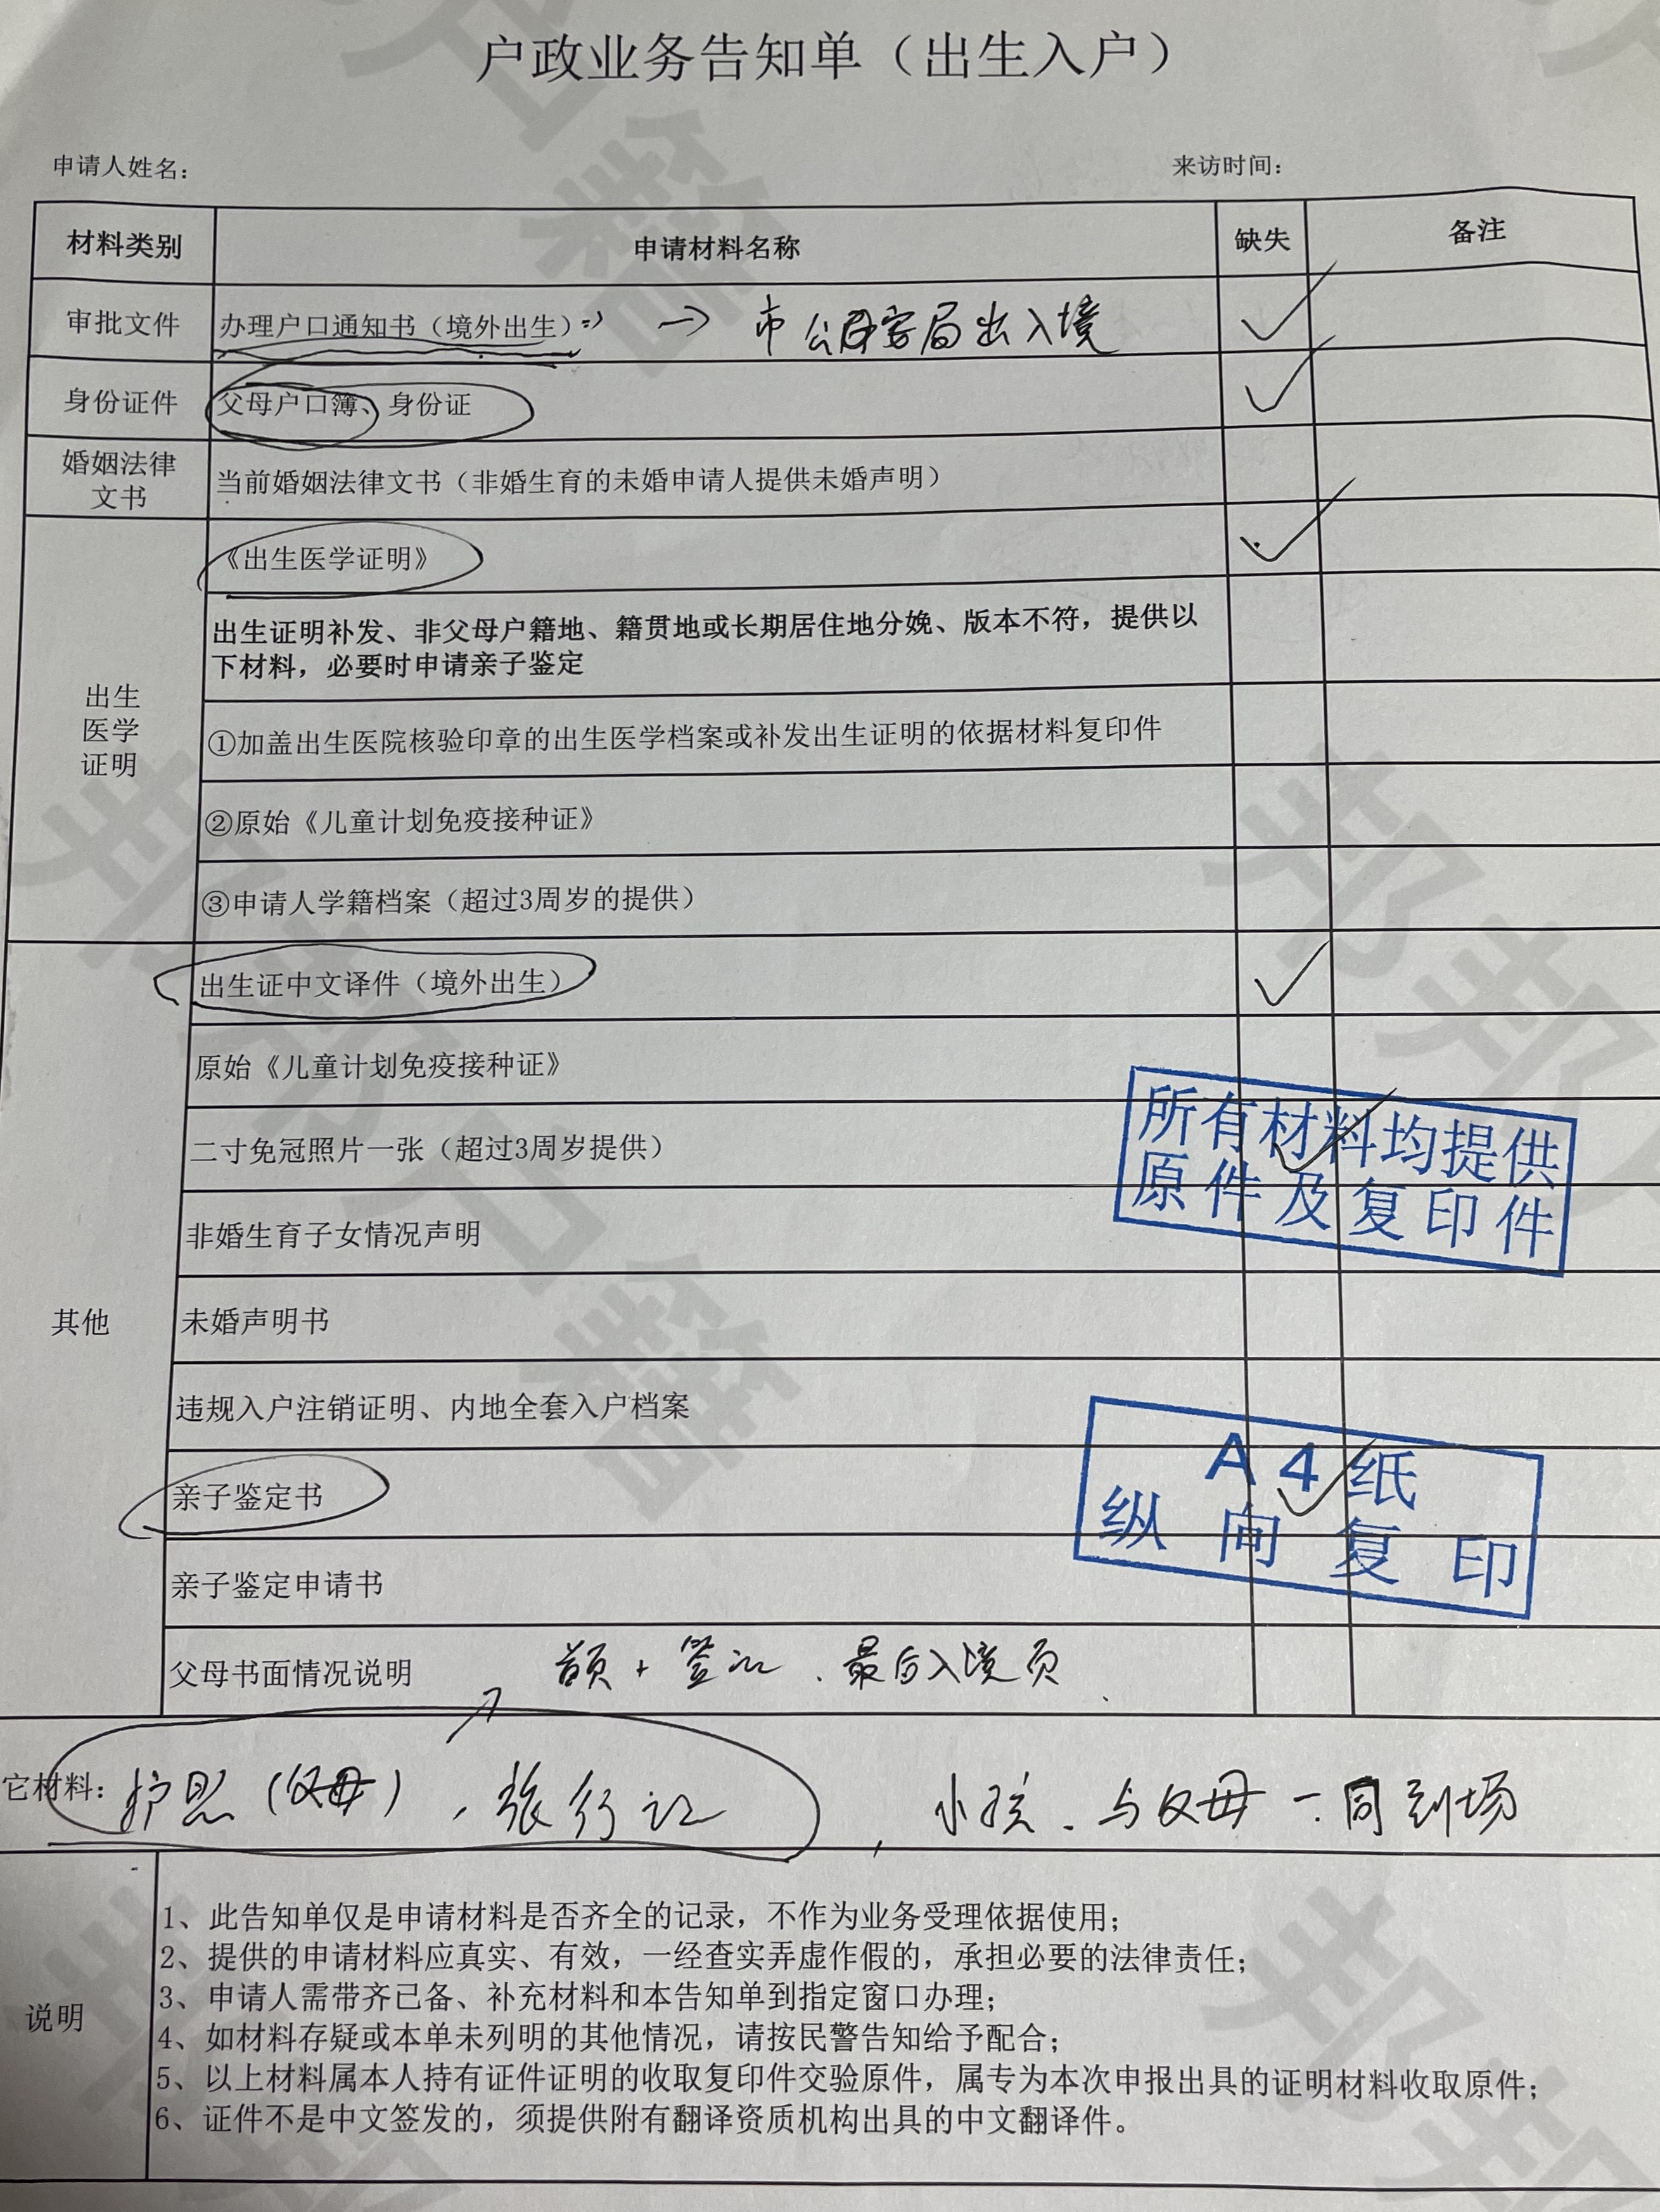 户政业务告知单（出生入户）
申请人姓名：
来访时间：
材料类别 申请材料名称 缺失 备注
审批文件 办理户口通知书（境外出生） → 市公安局出入境 ✓
身份证件 父母户口簿、身份证 ✓
婚姻法律
文书
当前婚姻法律文书（非婚生育的未婚申请人提供未婚声明）
出生
医学
证明
《出生医学证明》 ✓
出生证明补发、非父母户籍地、籍贯地或长期居住地分娩、版本不符，提供以
下材料，必要时申请亲子鉴定
①加盖出生医院核验印章的出生医学档案或补发出生证明的依据材料复印件
②原始《儿童计划免疫接种证》
③申请人学籍档案（超过3周岁的提供）
其他
出生证中文译件（境外出生） ✓
原始《儿童计划免疫接种证》
二寸免冠照片一张（超过3周岁提供） ✓
所有材料均提供
原件及复印件
非婚生育子女情况声明
未婚声明书
违规入户注销证明、内地全套入户档案
亲子鉴定书 ✓
A4纸
纵向复印
亲子鉴定申请书
父母书面情况说明 首页+签证、最后入境页
它材料：护照（父母），旅行证，小孩、与父母一同到场
说明
1、此告知单仅是申请材料是否齐全的记录，不作为业务受理依据使用；
2、提供的申请材料应真实、有效，一经查实弄虚作假的，承担必要的法律责任；
3、申请人需带齐已备、补充材料和本告知单到指定窗口办理；
4、如材料存疑或本单未列明的其他情况，请按民警告知给予配合；
5、以上材料属本人持有证件证明的收取复印件交验原件，属专为本次申报出具的证明材料收取原件；
6、证件不是中文签发的，须提供附有翻译资质机构出具的中文翻译件。
邦邦户籍